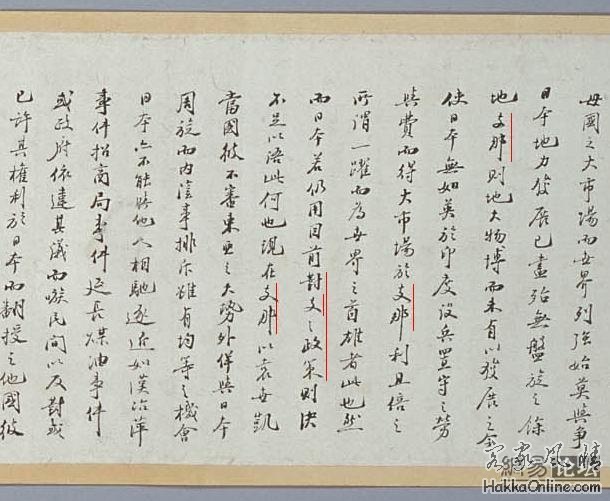 母國之大市場而世界列強始莫與爭
日本地力發展已盡殆無盤旋之餘
地支那則地大物博而未有以發展之今
使日本無如英於印度設兵置守之勞
與費而得大市場於支那利且倍之
所謂一躍而為世界之首雄者此也然
而日本若仍用目前對支之政策則決
不足以語此何也現在支那以袁世凱
當國彼不審東亞之大勢外佯與日本
周旋而內陰事排斥雖有均等之機會
日本亦不能與他人相馳逐近如漢冶萍
事件招商局事件延長煤油事件
或政府依違其議而嗾民間以反對或
已許其權利於日本而翻授之他國彼
客家風情
HakkaOnline.com